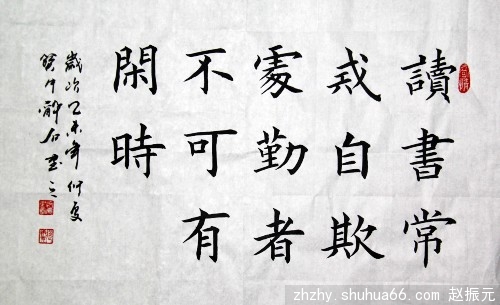 讀書常
戒自欺
處勤者
不可有
閑時
歲次乙未年仲夏
zhzhy.shuhua66.com 赵振元